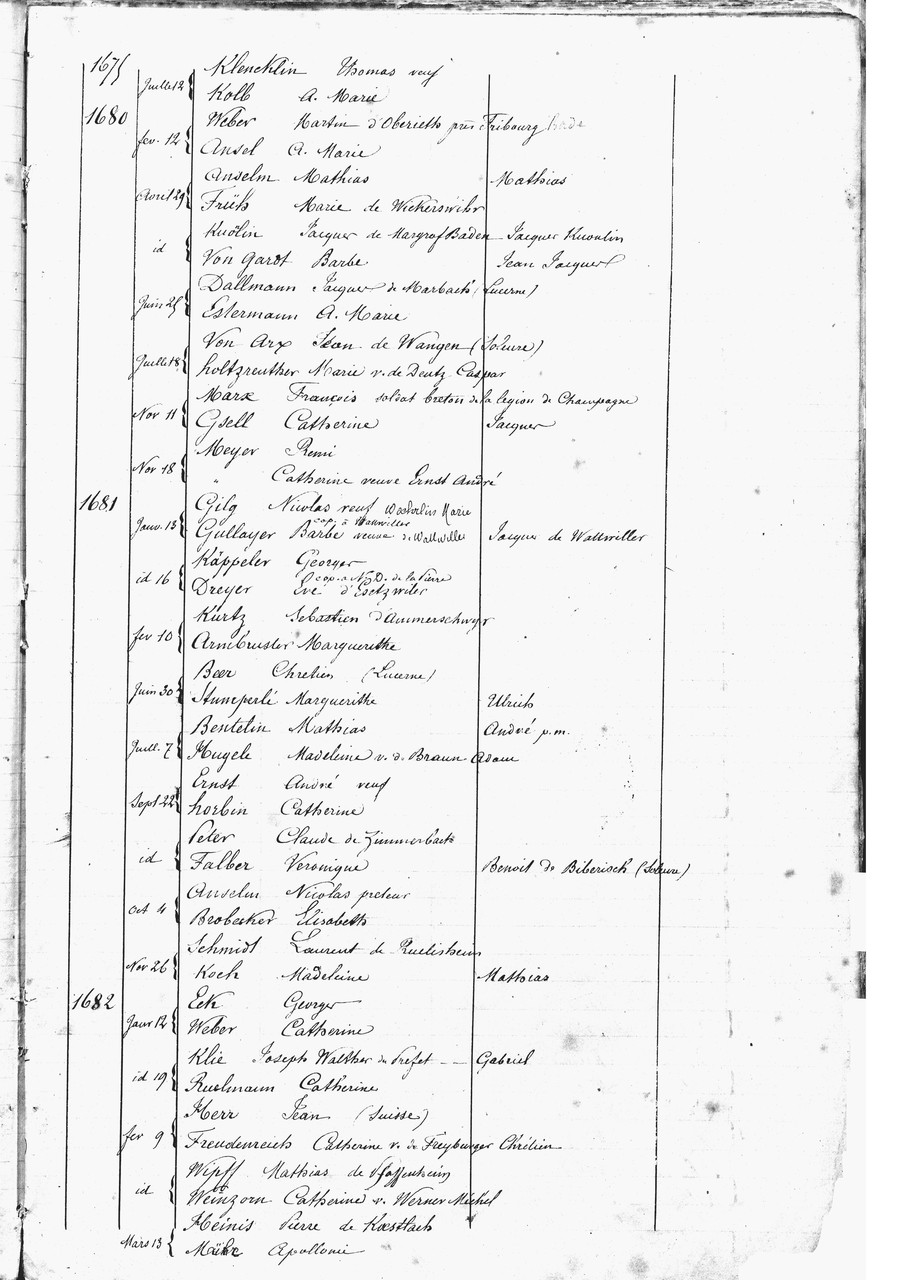 1675
Juill 12 { Klencklin Thomas veuf
Kolb A. Marie
1680
fev. 12 { Weber Martin d'Oberieth près Fribourg Bade
Ansel A. Marie
Avril 29 { Anselm Mathias Mathias
Früh Marie de Wickerswihr
id { Knölin Jacques de Margraf Baden Jacques Knoulin
Von Gardt Barbe Jean Jacques
Juin 25 { Dallmann Jacques de Marbach (Lucerne)
Estermann A. Marie
Juill 18 { Von Arx Jean de Wangen (Soleure)
holtzreuther Marie v. de Deutz Caspar
Nov 11 { Marx François soldat breton de la legion de Champagne
Gsell Catherine Jacques
Nov 18 { Meyer Remi
" Catherine veuve Ernst André
1681
Janv. 13 { Gilg Nicolas veuf Marie
cop. à Wattwiller
Gullayer Barbe veuve d. Wattwiller Jacques de Wattwiller
id 16 { Käppeler Georges
cop. a N.D. de la Pierre
Dreyer Eve
fev 10 { Kurtz Sebastien d'Ammerschwyr
Armbruster Marguerithe
Juin 30 { Beer Chretien (Lucerne)
Stuneperlé Marguerithe Ulrich
Juill. 7 { Bentelin Mathias André p.m.
Hugele Madeleine v. d. Braun Adam
Sept 22 { Ernst André veuf
horbin Catherine
id { Peter Claude de Zimmerbach
Falber Veronique Benoit de Biberisch (Soleure)
Oct 4 { Anselm Nicolas preteur
Brobecker Elisabeth
Nov 26 { Schmidt Laurent de Ruelisheim
Koch Madeleine Mathias
1682
Janv 12 { Eck Georges
Weber Catherine
id 19 { Klie Joseph Walther du Prefet -- Gabriel
Ruelmann Catherine
fev 9 { Herr Jean (Suisse)
Freudenreich Catherine v. de Freyburger Chrétien
id { Wipff Mathias de Pfaffenheim
Weinzorn Catherine v. Werner Michel
Mars 13 { Heinis Pierre de Kœstlach
Apollonie